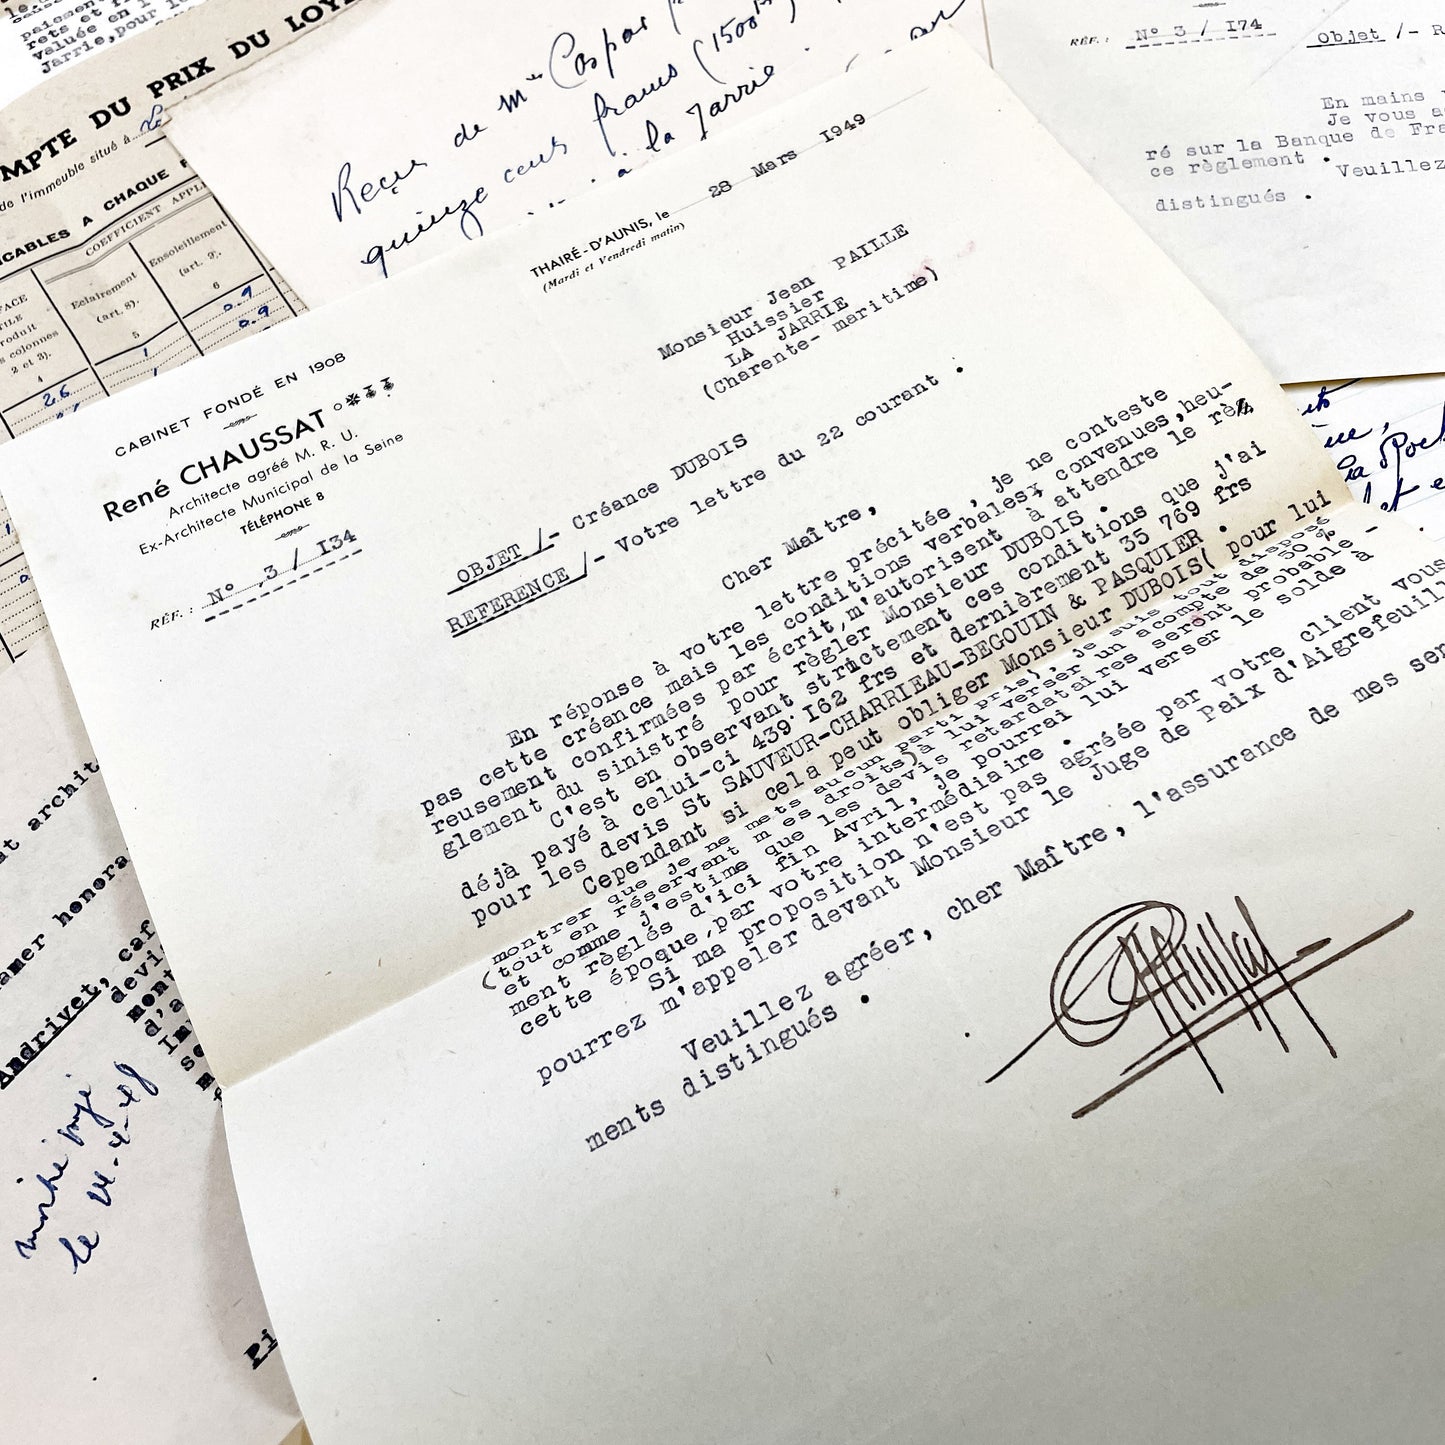 paiement
rets et f
valuée en l
Jarrie, pour l
MPTE DU PRIX DU LOYE
de l'immeuble situé à
ICABLES A CHAQUE P
COEFFICIENT APPLI
FACE
TILE
roduit
s colonnes
2 et 3).
4
Eclairement
(art. 8).
5
Ensoleillement
(art. 9).
6
0.9
0.9
1
2.6
Reçu de Mme Caspar
quinze cents francs (1500frs)
à la Jarrie
RÉF. : N° 3 / I74 Objet /- R
En mains
Je vous a
ré sur la Banque de Fra
ce règlement .
Veuillez
distingués .
THAIRÉ-D'AUNIS, le 28 Mars I949
(Mardi et Vendredi matin)
CABINET FONDÉ EN 1908
René CHAUSSAT
Architecte agréé M. R. U.
Ex-Architecte Municipal de la Seine
TÉLÉPHONE 8
RÉF. : N° ,3 / I34
Monsieur Jean PAILLE
Huissier
LA JARRIE
(Charente- maritime)
OBJET /- Créance DUBOIS
REFERENCE /- Votre lettre du 22 courant .
Cher Maître,
En réponse à votre lettre précitée , je ne conteste
pas cette créance mais les conditions verbales convenues,heu-
reusement confirmées par écrit,m'autorisent à attendre le rè
glement du sinistré pour règler Monsieur DUBOIS .
C'est en observant strictement ces conditions que j'ai
déjà payé à celui-ci 439 I62 frs et dernièrement 35 769 frs
pour les devis St SAUVEUR-CHARRIEAU-BEGOUIN & PASQUIER .
Cependant si cela peut obliger Monsieur DUBOIS( pour lui
montrer que je ne mets aucun parti pris), je suis tout disposé
(tout en réservant mes droits)à lui verser un acompte de 50 %
et comme j'estime que les devis retardataires seront probable-
ment règlés d'ici fin Avril, je pourrai lui verser le solde à
cette époque,par votre intermédiaire .
Si ma proposition n'est pas agréée par votre client vous
pourrez m'appeler devant Monsieur le Juge de Paix d'Aigrefeuill
Veuillez agréer, cher Maître, l'assurance de mes sen
ments distingués .
t archit
amer honora
Andrivet, caf
devi
mont
d'a
Im
se
le 14-4-48
Pi